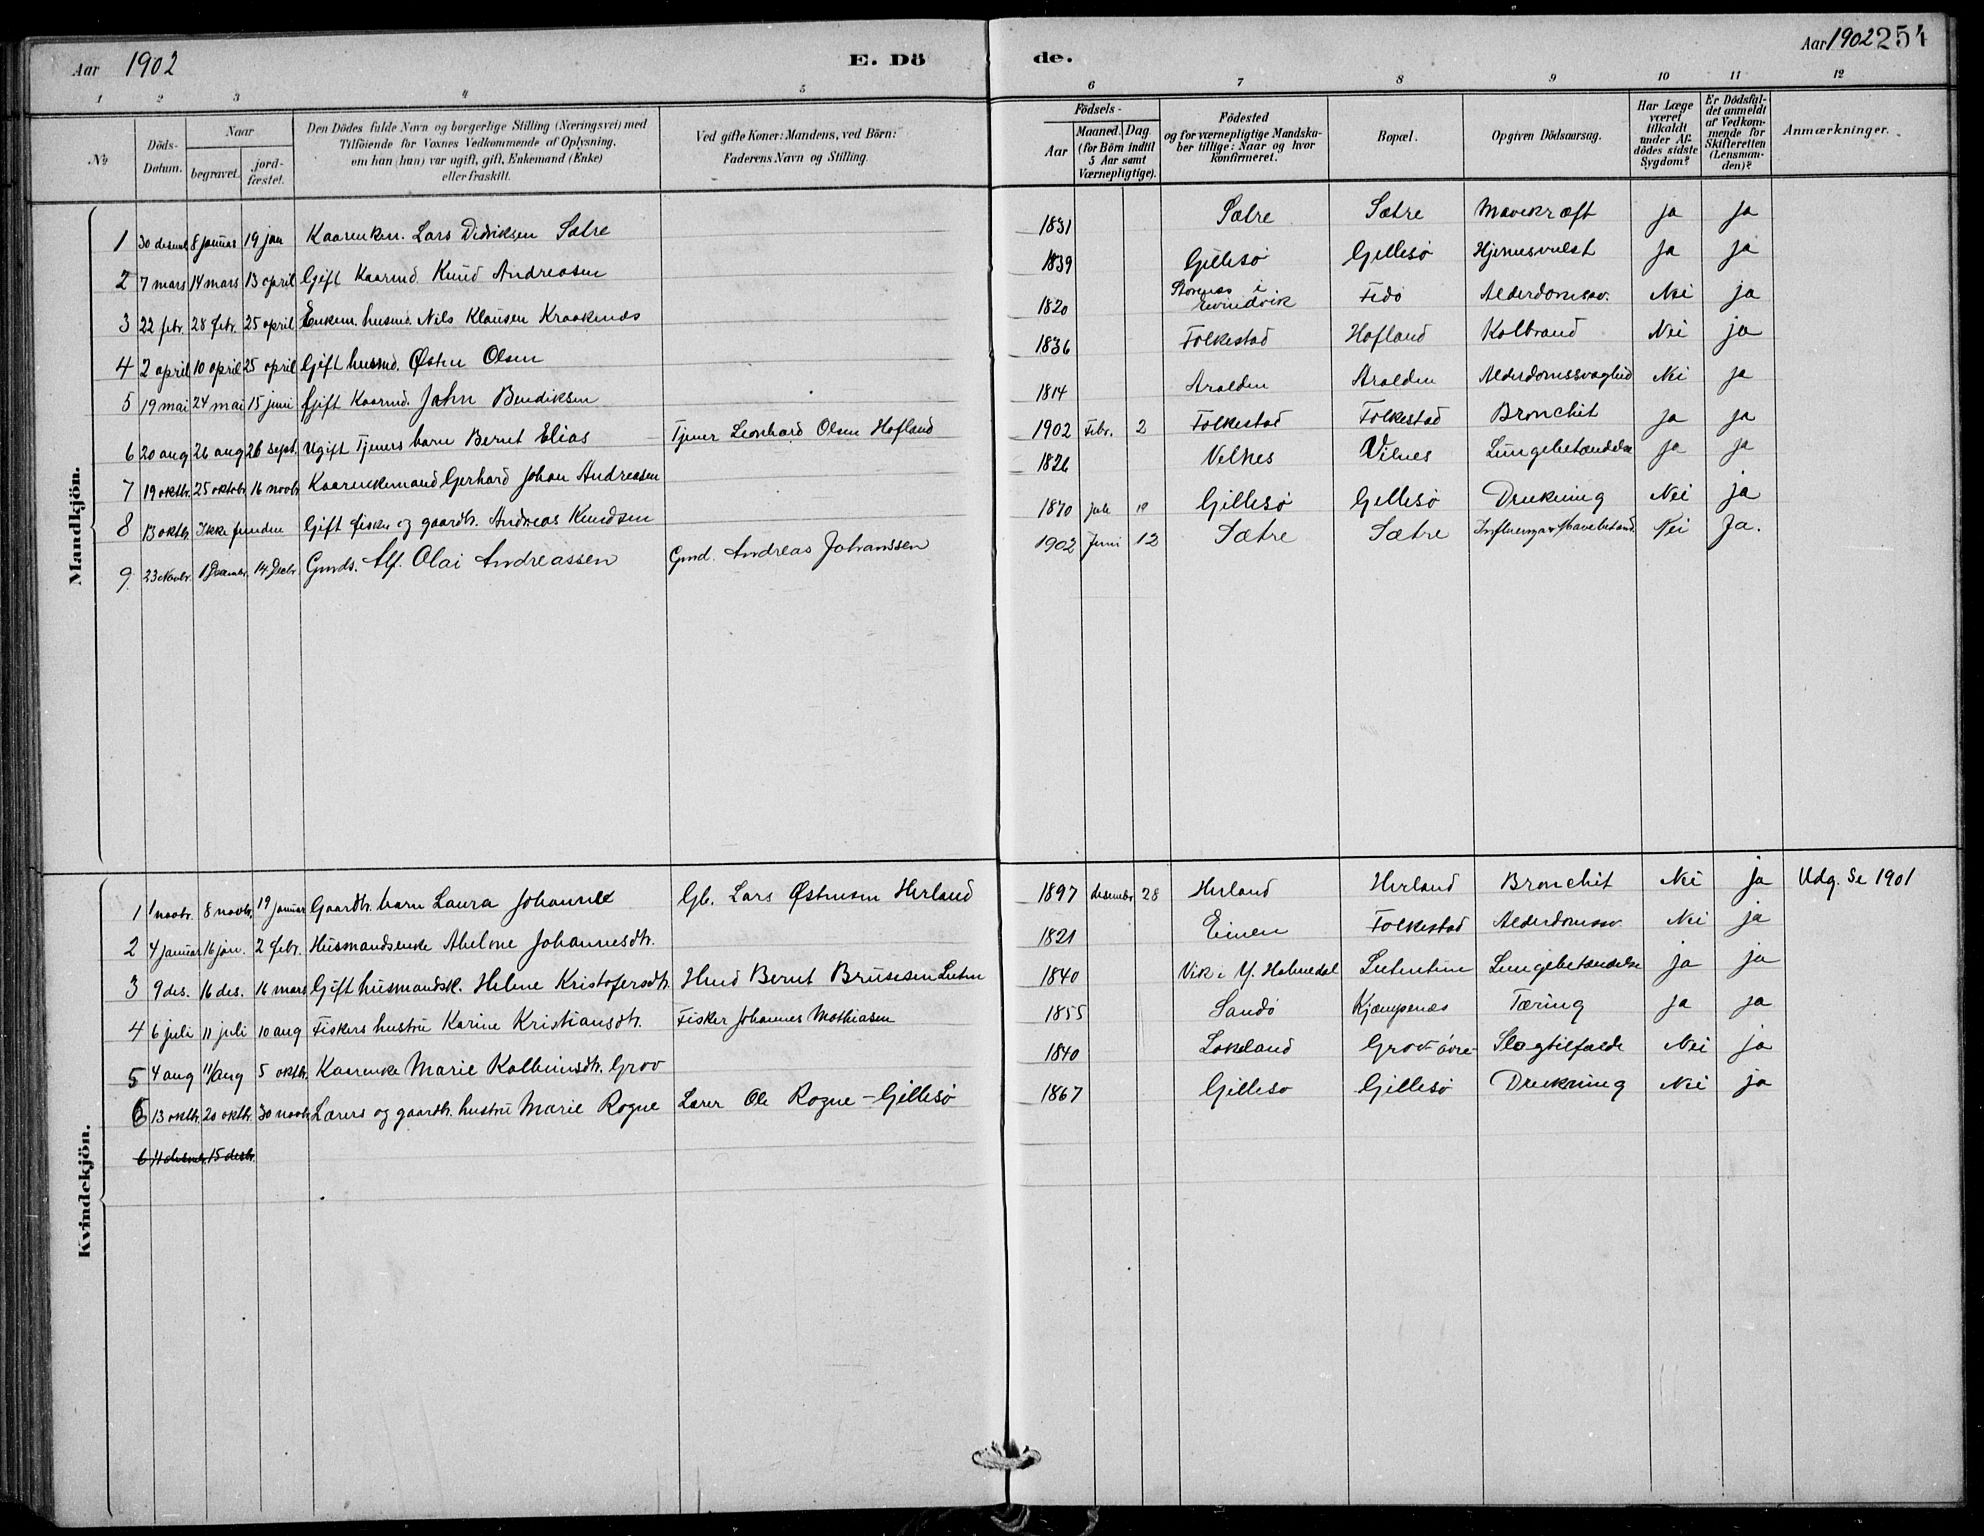 Aar 1902 E. Dö de. Aar 1902 254
1 2 3 4 5 6 7 8 9 10 11 12
No
Döds-Datum.
Naar
begravet.
jord-fæstet.
Den Dödes fulde Navn og borgerlige Stilling (Næringsvei) med
Tilföiende for Voxnes Vedkommende af Oplysning,
om han (hun) var ugift, gift, Enkemand (Enke)
eller fraskilt.
Ved gifte Koner: Mandens, ved Börn:
Faderens Navn og Stilling.
Födsels-
Aar
Maaned. Dag.
(for Börn indtil
5 Aar samt
Værnepligtige).
Födested
og for værnepligtige Mandska-
ber tillige: Naar og hvor
konfirmeret.
Bopæl.
Opgiven Dödsaarsag.
Har Læge
været
tilkaldt
under Af-
dödes sidste
Sygdom?
Er Dödsfal-
det anmeldt
af Vedkom-
mende for
Skifteretten
(Lensman-
den)?
Anmærkninger.
Mandkjön.
1 30 desemb. 8 januar 19 jan Kaarenkem. Lars Didriksen Sætre 1831 Sætre Sætre Mavekræft ja ja
2 7 mars 14 mars 13 april Gift Kaarmd. Knud Andreasen 1839 Gillesø Gillesø Hjernesvulst ja ja
3 22 febr. 28 febr. 25 april Enkem. husmd. Nils Klausen Kraakenes 1820 i Evindvik Fedø Alderdomssv. Nei ja
4 2 april 10 april 25 april Gift husmd. Østen Olsen 1836 Folkestad Hofland Kolbrand Nei ja
5 19 mai 24 mai 15 juni Gift Kaarmd. John Bendiksen 1814 Aralden Aralden Alderdomssvaghed Nei ja
6 20 aug 26 aug 26 sept. Ugift Tjeners barn Bernt Elias Tjener Leonhard Olsen Hofland 1902 Febr. 2 Folkestad Folkestad Bronchit ja ja
7 19 oktbr. 25 oktobr. 16 novbr. Kaarenkemand Gerhard Johan Andreasen 1826 Vilnes Vilnes Lungebetændelse ja ja
8 13 oktbr. Ikke funden Gift fisker og gaardb. Andreas Knudsen 1870 juli 10 Gillesø Gillesø Drukning Nei ja
9. 23 Novbr. 1 Decembr. 14 Decbr. Gmds. Alf. Olai Andreassen Gmd. Andreas Johanssen 1902 Juni 12 Sætre Sætre Influensa Mavebetænd. Nei Ja.
Kvindekjön.
1 1 novbr. 8 novbr. 19 januar Gaardbr. barn Laura Johanne Gb. Lars Østensen Herland 1897 desembr 28 Herland Herland Bronchit Nei ja Udg. Se 1901
2 4 januar 16 jan. 2 febr. Husmandsenke Abelone Johannesdtr. 1821 Einen Folkestad Alderdomssv. Nei ja
3 9 des. 16 des. 16 mars Gift husmandsk. Helene Kristofersdtr. Husmd Bernt 1840 Vik i Y. Holmedal Lungebetændelse ja ja
4 6 juli 11 juli 10 aug Fiskers hustru Karine Kristiansdtr. Fisker Johannes Mathiasen 1855 Sandø Kjempenes Tæring ja ja
5 4 aug 11/aug 5 oktbr. Kaarenke Marie Kolbeinsdtr. Grov 1840 Lokeland Grov øvre Slagtilfælde Nei ja
6 13 oktbr. 20 oktbr. 30 novbr. Lærers og gaardb. hustru Marie Rogne Lærer Ole Rogne - Gillesø 1867 Gillesø Gillesø Drukning Nei ja
6 11 desembr. 15 desbr.